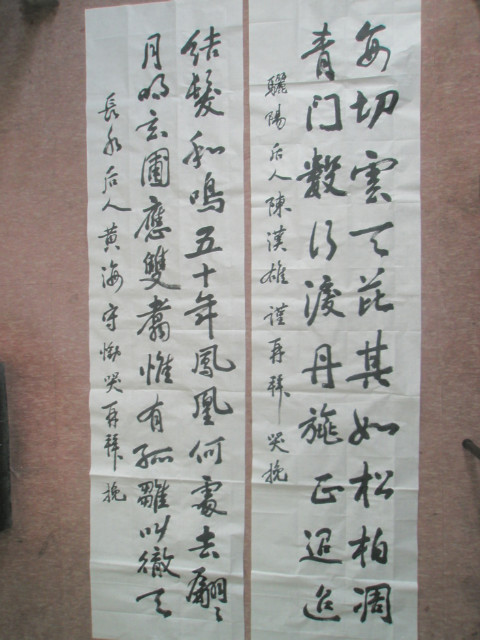 每切雲天芘其如松柏凋
青门數行淚丹旐正迢迢
驪陽后人陳漢雄謹再拜哭挽
结髮和鳴五十年鳳凰何處去翩〻
月明玄圃應雙翥惟有孤雛叫徹天
長水后人黄海守慟哭再拜挽